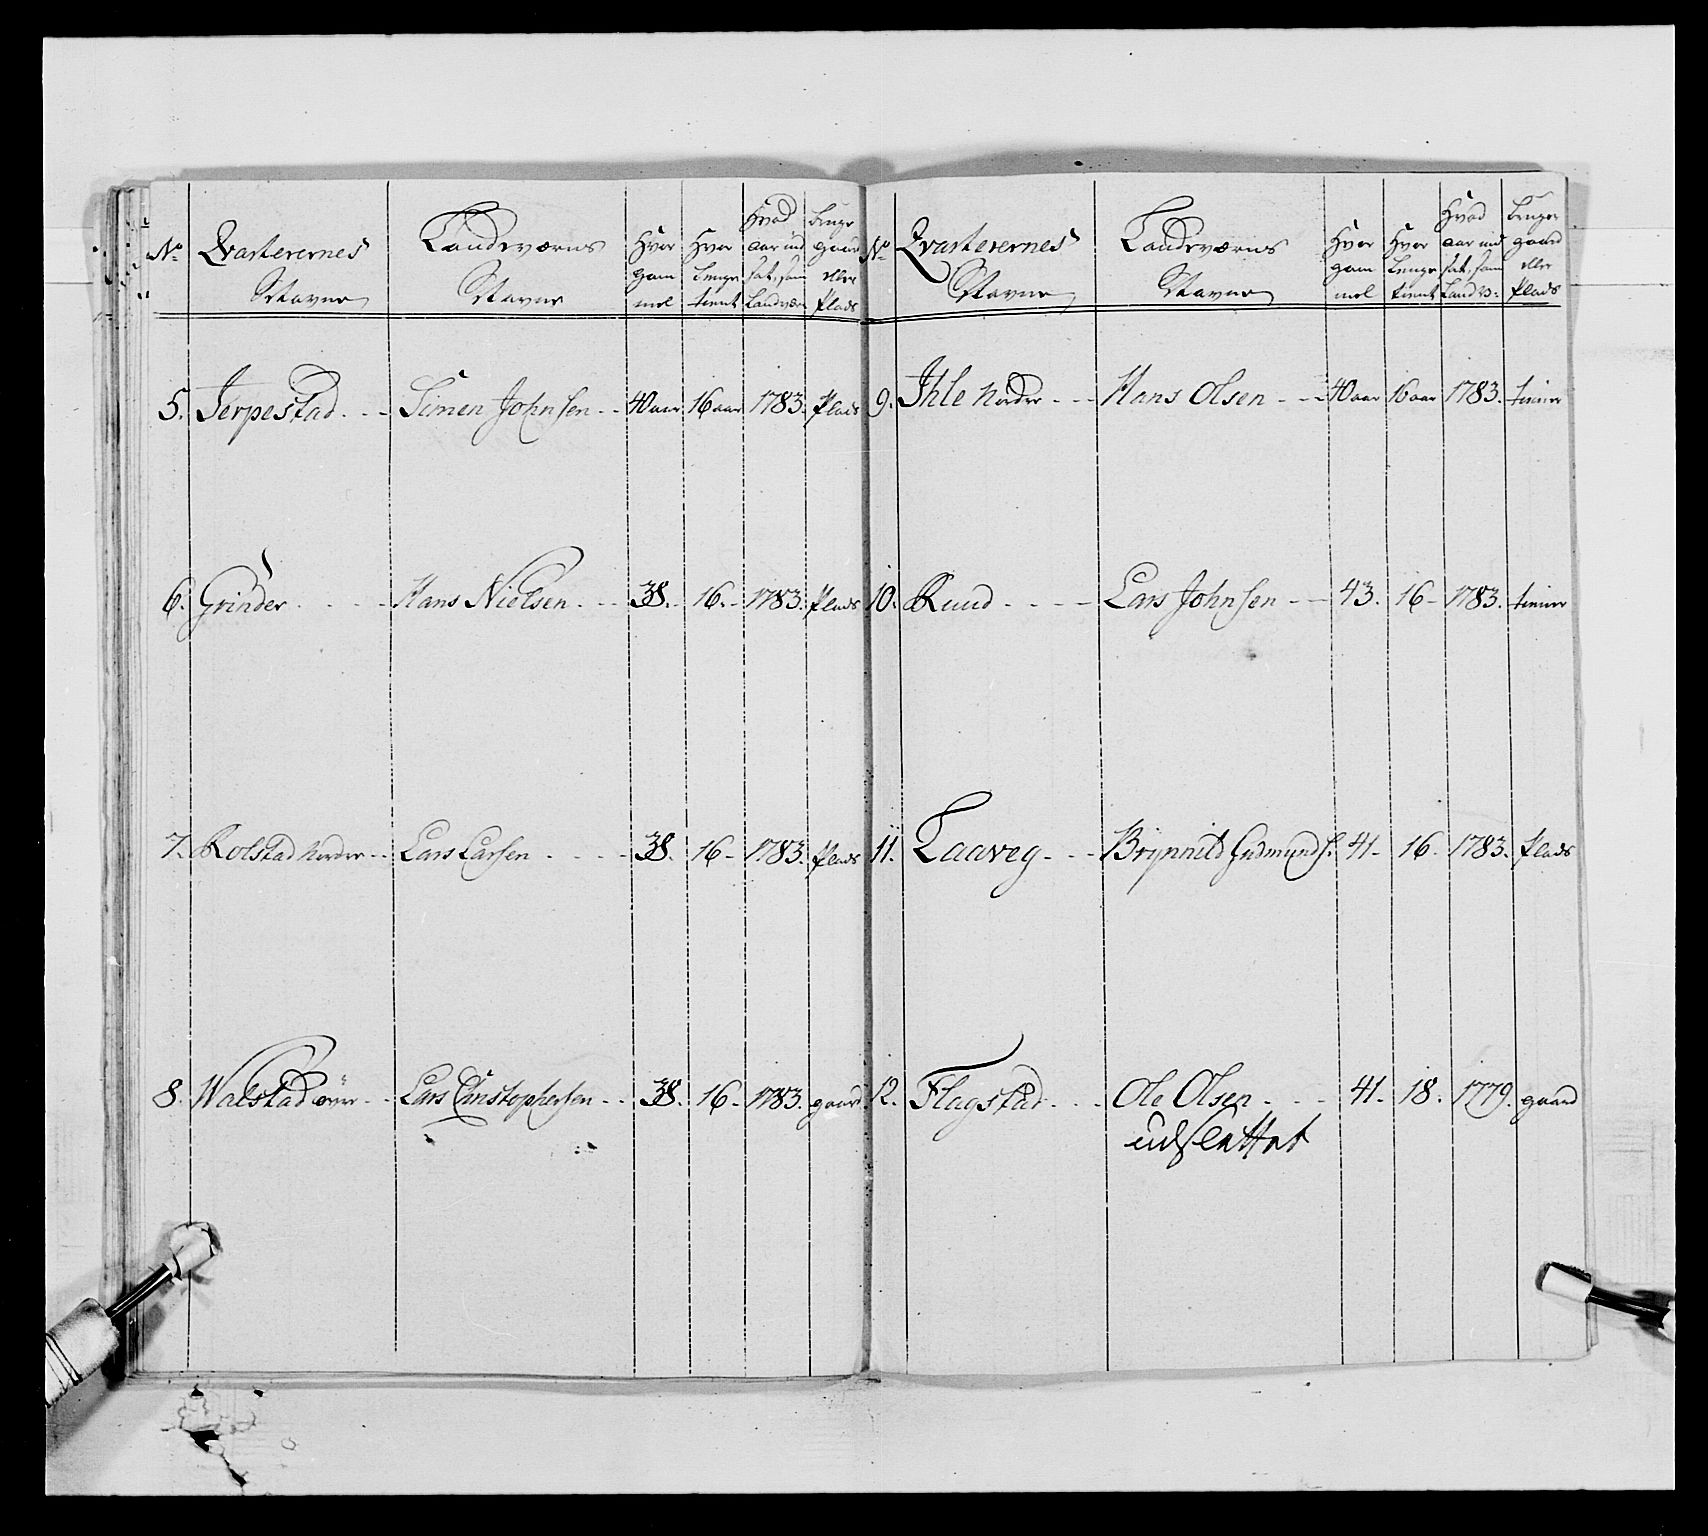 No Qvarterernes Navne Landeværns Navne Hvor gam mel Hvor lenge tient Hvad aar ind sat, som Landvær Bruger gaard eller Plads
5. Jerpestad Simen Johnsen 40 aar 16 aar 1783. Plads
6. Grinder Hans Nielsen 38. 16. 1783. Plads
7. Rolstad Nordre Lars Larsen 38. 16 1783. Plads
8. Walstad øvre Lars Christophersen 38. 16 1783. gaard
No Qvarterernes Navne Landeværns Navne Hvor gam mel Hvor lenge tient Hvad aar ind sat, som Land v: Bruger gaard eller Plads
9. Ihle Nordre Hans Olsen 40 aar 16 aar 1783. tiener
10. Ruud Lars Johnsen 43. 16 1783. tiener
11. Laaveg Brynnild Gudmunds: 41 16 1783. Plads
12. Flagstad Ole Olsen 41 18. 1779. gaard
udslettet